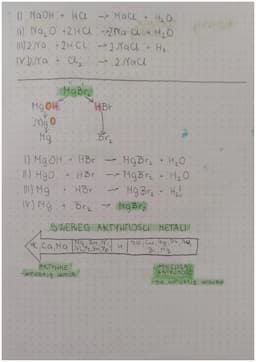 I) NaOH + HCl → NaCl + H₂O
II) Na₂O + 2HCl → 2NaCl + H₂O
III) 2Na + 2HCl → 2NaCl + H₂
IV) 2Na + Cl₂ → 2NaCl
MgBr₂
MgOH HBr
MgO
Mg Br₂
I) MgOH + HBr → MgBr₂ + H₂O
II) MgO + HBr → MgBr₂ + H₂O
III) Mg + HBr → MgBr₂ + H₂
IV) Mg + Br₂ → MgBr₂
SZEREG AKTYWNOŚCI METALI
K, Ca, Na H
AKTYWNE